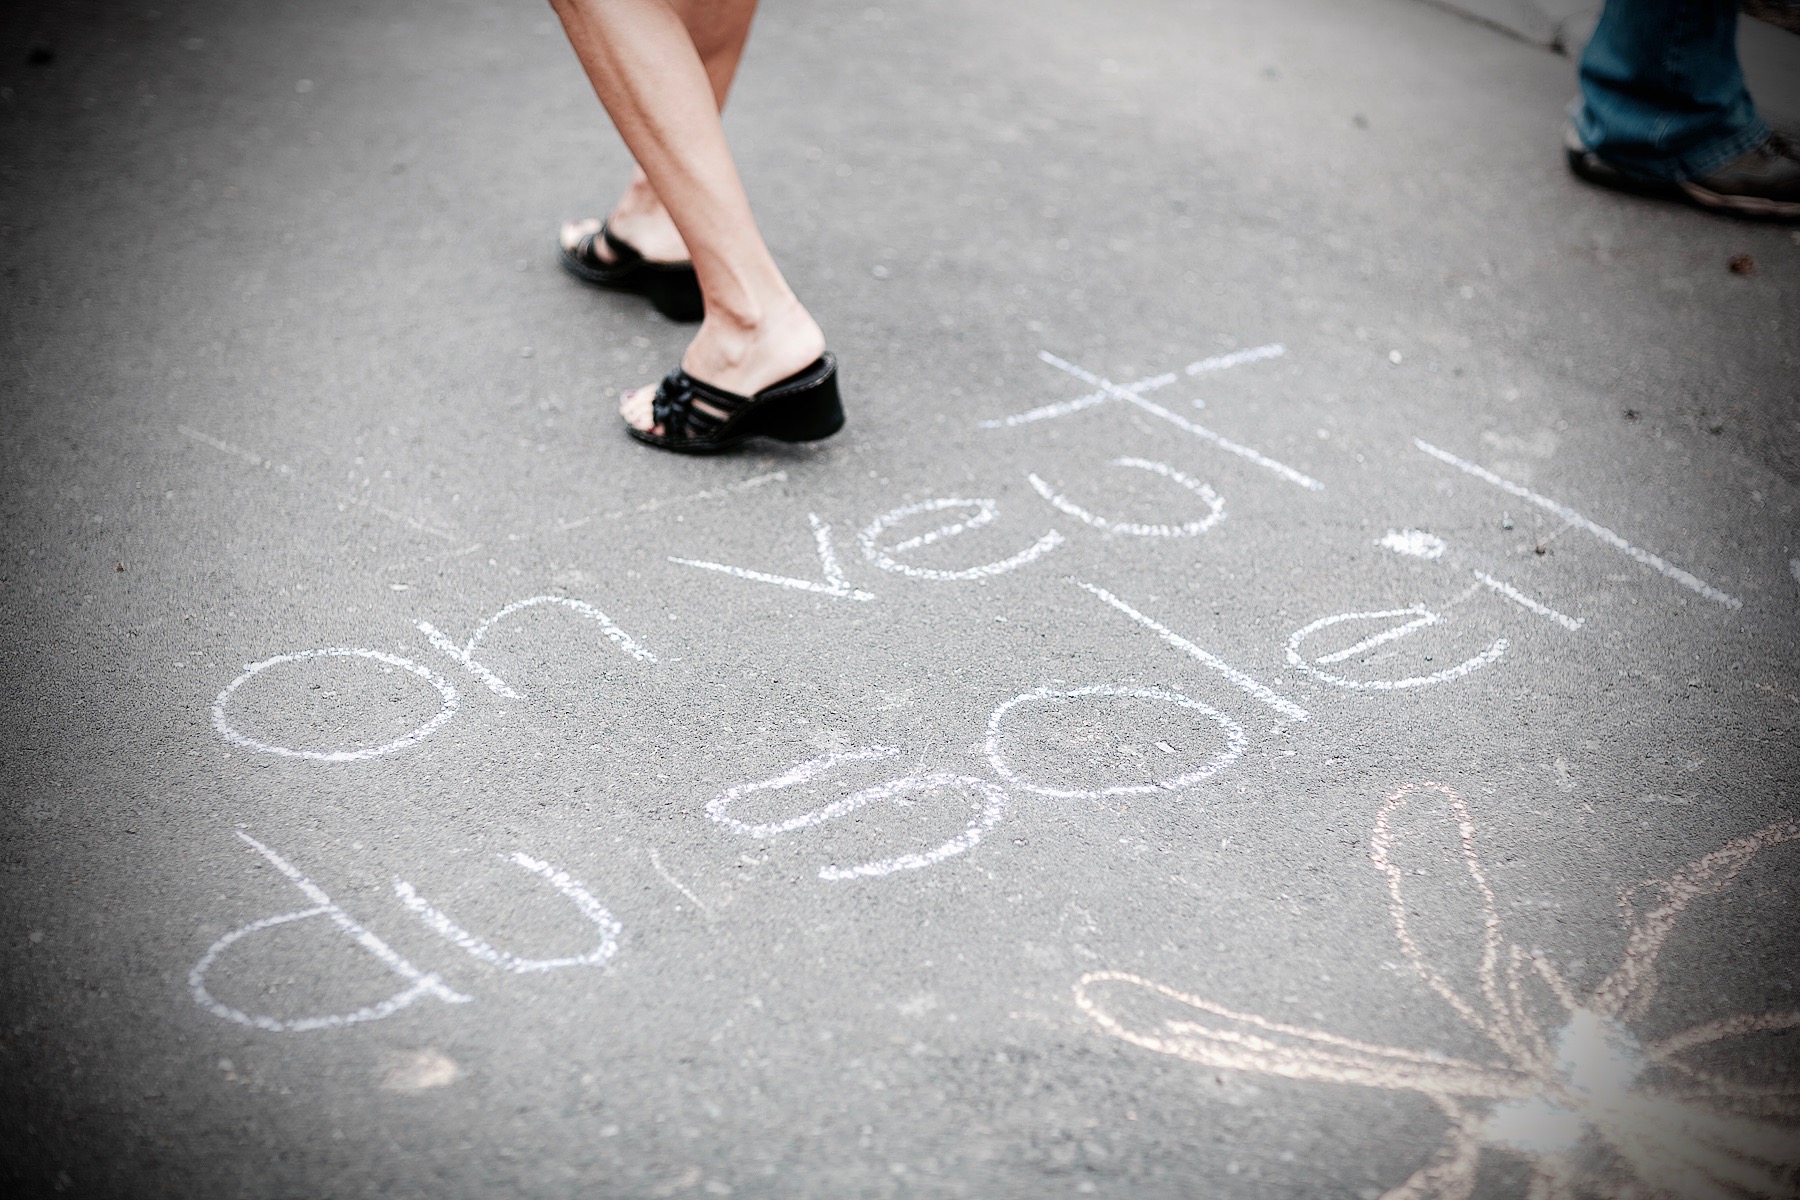 on veut
du soleil